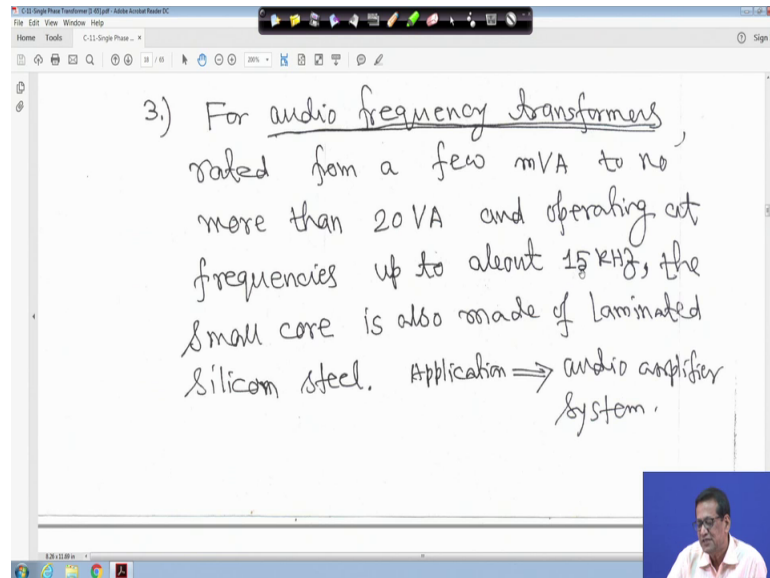 C-11-Single Phase Transformer [1-65].pdf - Adobe Acrobat Reader DC
File Edit View Window Help
Home Tools C-11-Single Phase ... × Sign
18 / 65 200%
3.) For audio frequency transformers,
rated from a few mVA to no
more than 20 VA and operating at
frequencies up to about 15 KHz, the
small core is also made of Laminated
Silicon steel. Application ⟹ audio amplifier
System.
8.26 x 11.69 in